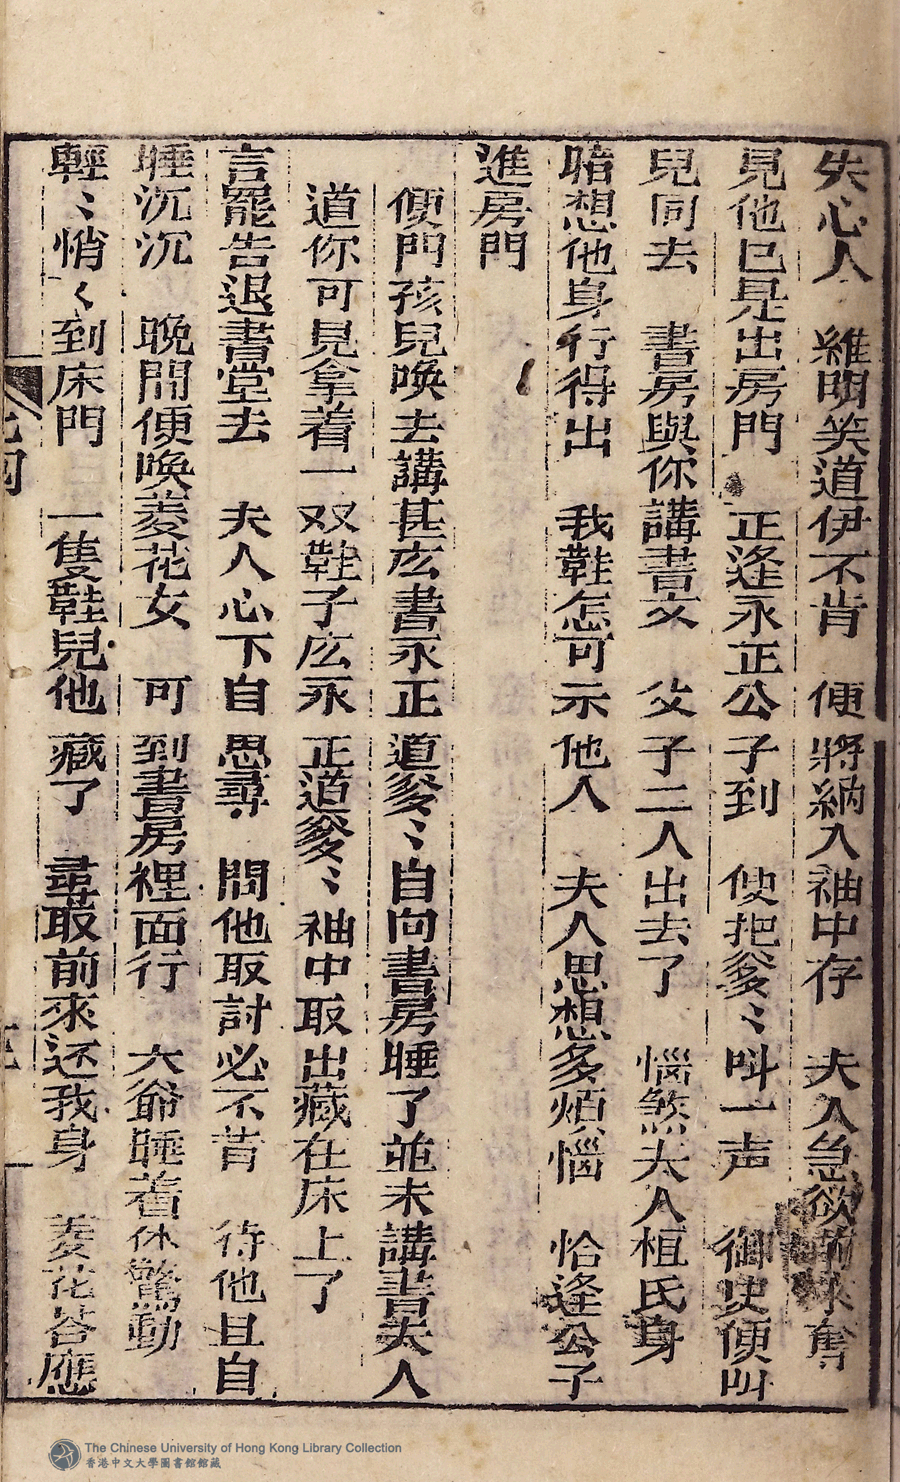 失心人　維明笑道伊不肯　便將納入袖中存　夫人急欲前來奪
見他已是出房門　正逢永正公子到　便把爹〻叫一声　御史便叫
兒同去　書房與你講書文　父子二人出去了　惱煞夫人桓氏身
暗想他身行得出　我鞋怎可示他人　夫人思想多煩惱　恰逢公子
進房門
便問孩兒喚去講甚庅書永正道爹〻自向書房睡了並未講書夫人
道你可見拿着一双鞋子庅永正道爹〻袖中取出藏在床上了
言罷告退書堂去　夫人心下自思尋　問他取討必不肯　待他且自
睡沉沉　晚間便喚菱花女　可到書房裡面行　大爺睡着休驚動
輕〻悄〻到床門　一隻鞋兒他藏了　尋最前來还我身　菱花荅應
The Chinese University of Hong Kong Library Collection
香港中文大學圖書館館藏